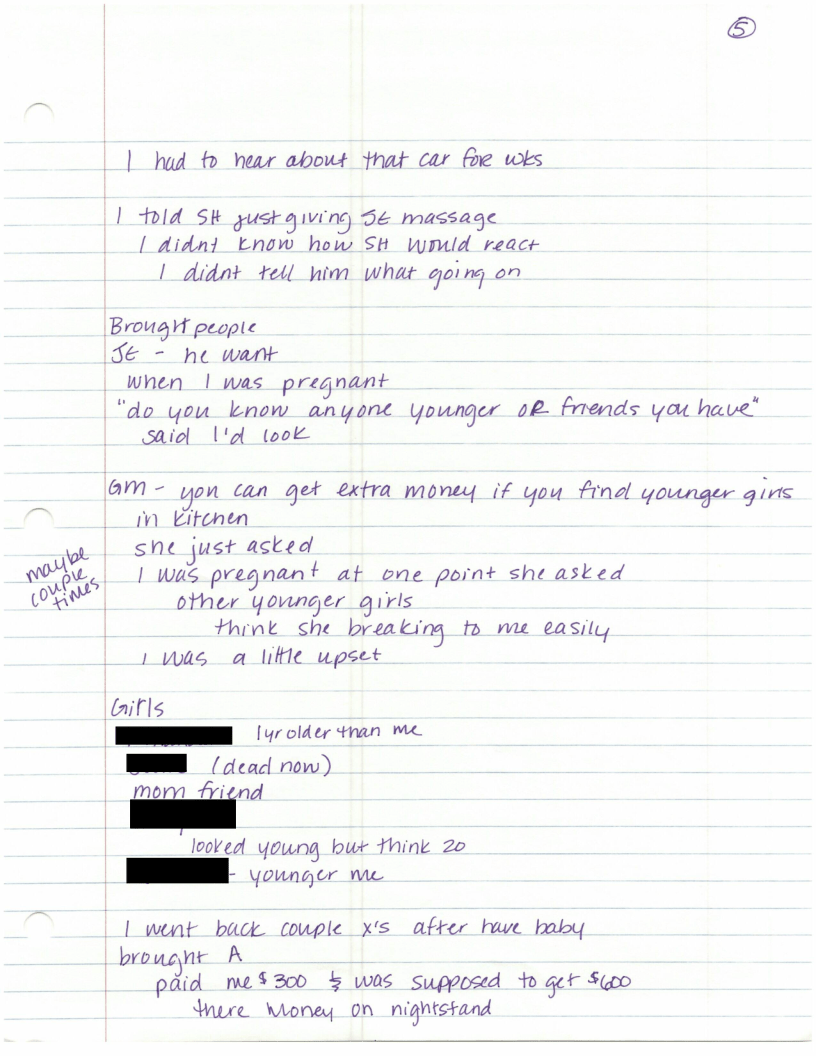 5
I had to hear about that car fore wks
I told SH just giving JE massage
I didnt know how SH would react
I didnt tell him what going on
Brought people
JE - he want
when I was pregnant
"do you know anyone younger OR friends you have"
said I'd look
GM - you can get extra money if you find younger girls
in kitchen
she just asked
maybe
couple
times
I was pregnant at one point she asked
other younger girls
think she breaking to me easily
I was a little upset
Girls
1yr older than me
(dead now)
mom friend
looked young but think 20
- younger me
I went back couple x's after have baby
brought A
paid me $300 & was supposed to get $600
there money on nightstand